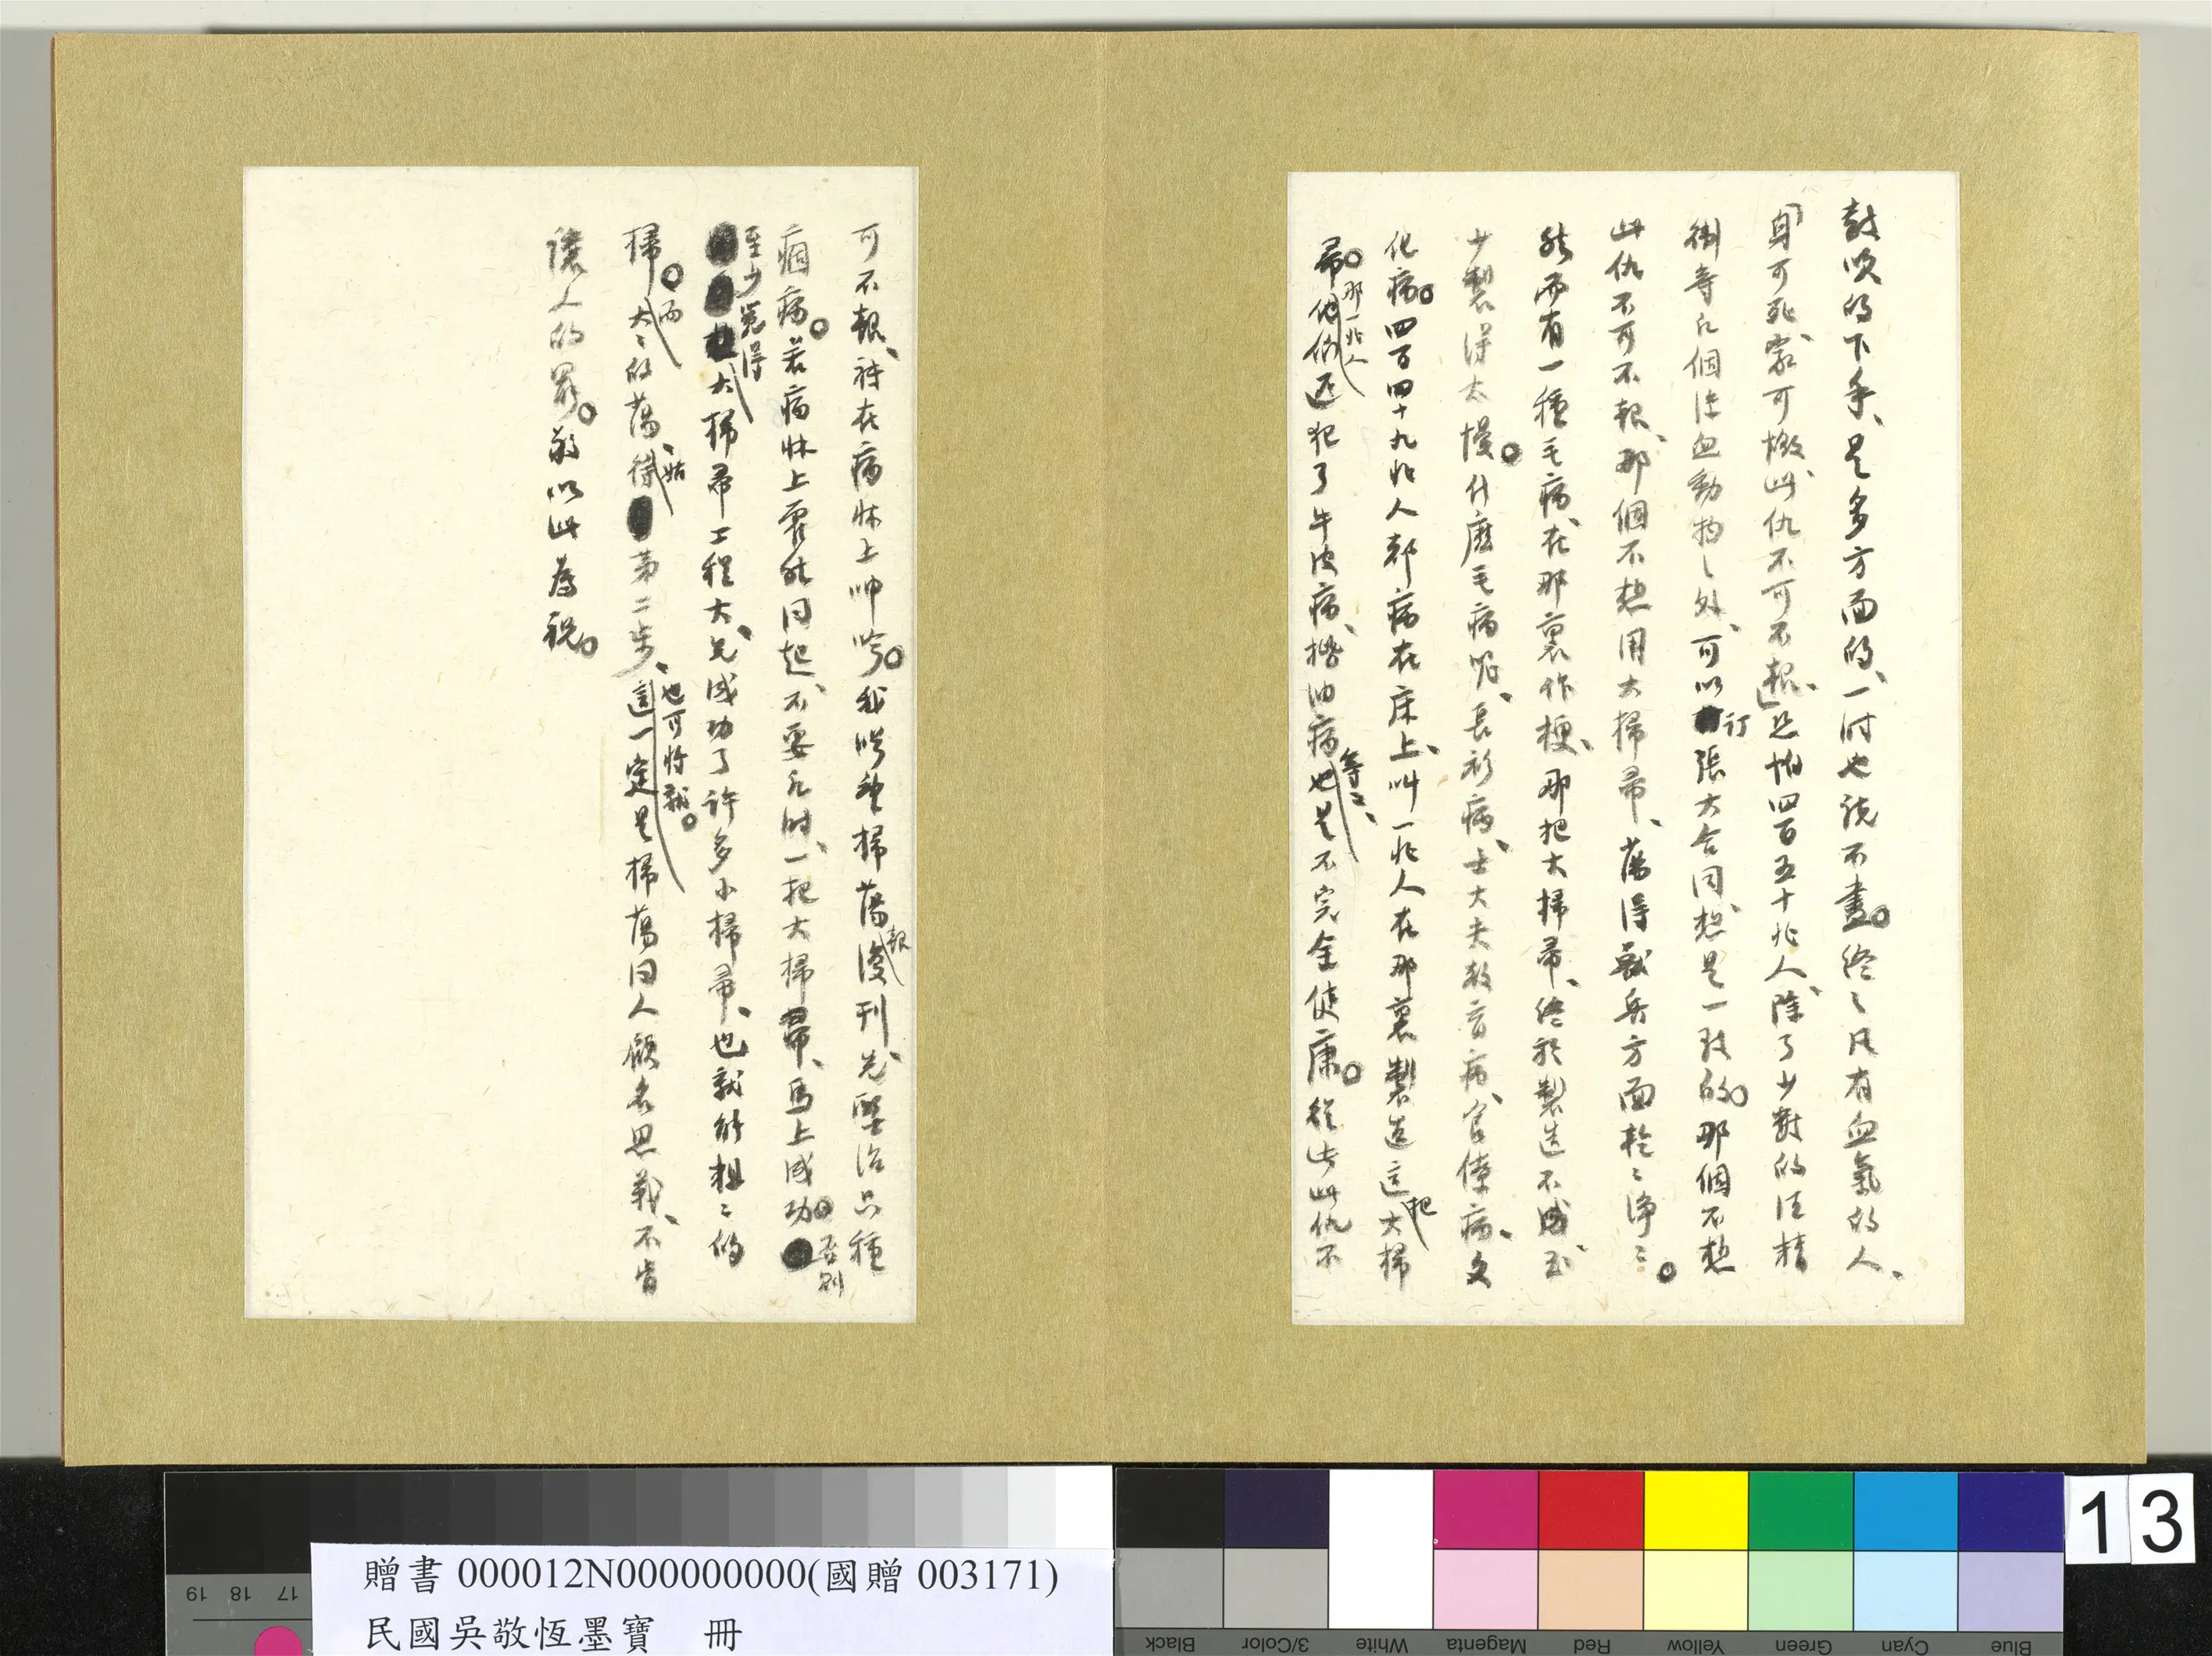 鼓吹的下手、是多方面的、一时也說不盡。終之凡有血氣的人、
「身可死、家可燬、此仇不可不報、」恐怕四百五十兆人、除了少數的汪精
衛等幾個冷血動物之外、可以訂張大合同、想是一致的。那個不想
此仇不可不報、那個不想用大掃帚、蕩得敵兵方面乾乾淨淨。
然而有一種毛病、在那裏作梗、那把大掃帚、終於製造不成、至
少製得太慢。什麼毛病呢、長衫病、士大夫教育病、官僚病、文
化病。四百四十九兆人都病在床上、叫一兆人在那裏製造這把大掃
帚。那一兆人
他們還犯了牛皮病、揩油病等等、也是不完全健康。從此此仇不
可不報、祇在病牀上呻吟。我以望掃蕩報復刊先、醫治只種
痼病。若病牀上霍然同起、不要幾時、一把大掃帚、馬上成功。否則
至少覓得
大掃帚工程大、先成功了許多小掃帚、也就能粗粗的
掃。而大大的蕩、姑待第二步、也可將就。
這一定是掃蕩同人顧名思義、不肯
讓人的罷。敬以此為祝。
贈書 000012N000000000(國贈 003171)
民國吳敬恆墨寶 冊
13
19 18 17
Black 3/Color White Magenta Red Yellow Green Cyan Blue